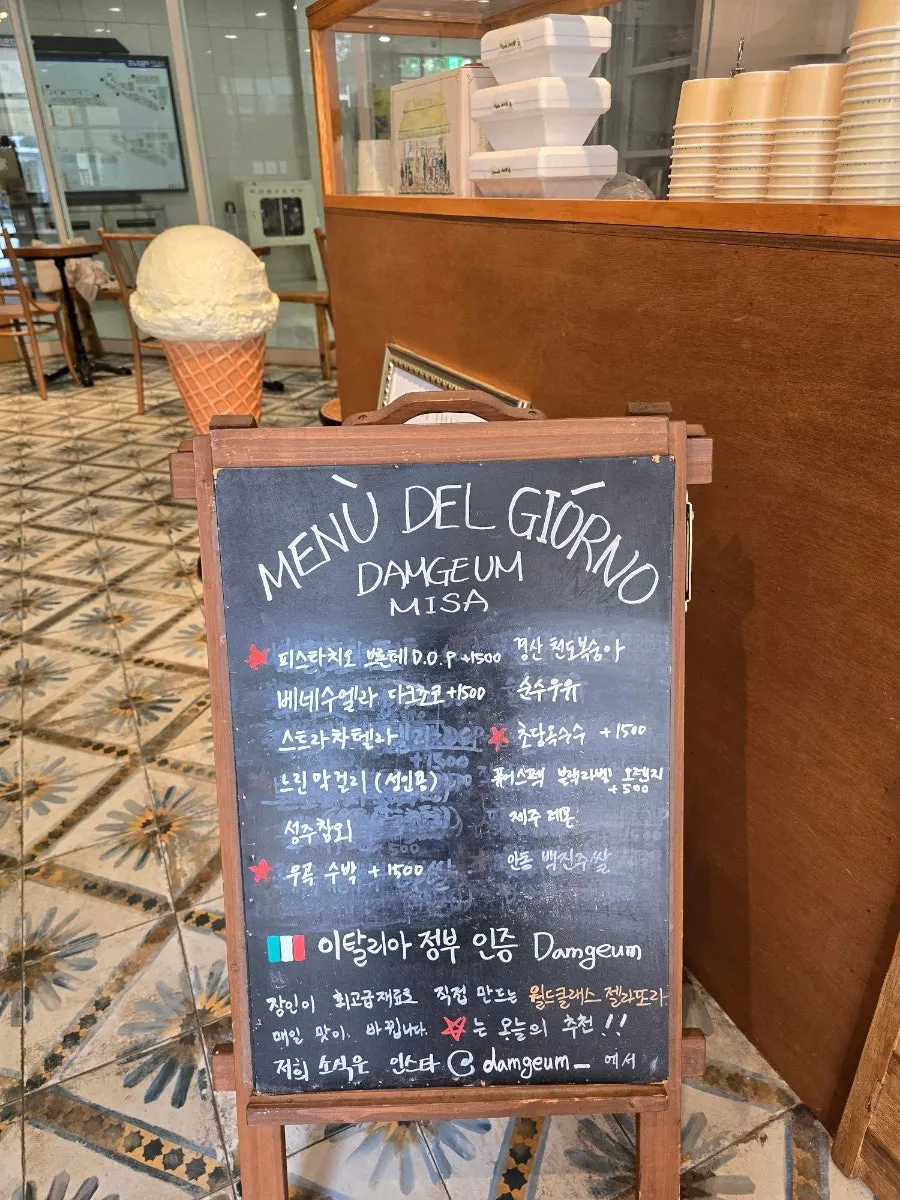 MENÙ DEL GIÓRNO
DAMGEUM
MISA
피스타치오 브론테 D.O.P +1500
베네수엘라 다크초코 +1500
스트라차텔라
느린막걸리 (성인용)
성주참외
우곡 수박 +1500
경산 천도복숭아
순수우유
초당옥수수 +1500
퓨어스펙 블랙라벨 오렌지
+500
제주 레몬
안동 백진주쌀
이탈리아 정부 인증 Damgeum
장인이 최고급재료로 직접 만드는 월드클래스 젤라또라
매일 맛이 바뀝니다. ☆는 오늘의 추천!!
저희 소식은 인스타 @damgeum_ 에서